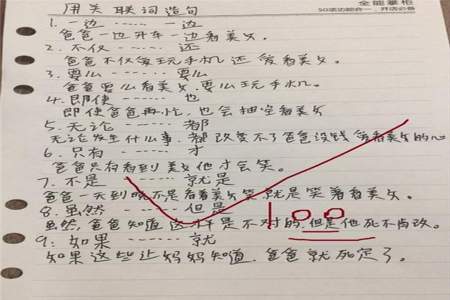 全能掌柜
50项功能合一，开店必备
用关联词造句
1. 一边 …… 一边
爸爸一边开车一边看美女。
2. 不仅 …… 还
爸爸不仅爱玩手机还爱看美女。
3. 要么 …… 要么
爸爸要么看美女，要么玩手机。
4. 即使 …… 也
即使爸爸再忙，也会抽空看美女
5. 无论 …… 都
无论发生什么事，都改变不了爸爸没钱爱看美女的心
6. 只有 …… 才
爸爸只有看到美女他才会笑。
7. 不是 …… 就是
爸爸一天到晚不是看着美女笑就是笑着看美女。
8. 虽然 …… 但是
100
虽然，爸爸知道这样是不对的，但是他死不肯改。
9: 如果 …… 就
如果这些让妈妈知道，爸爸就死定了。